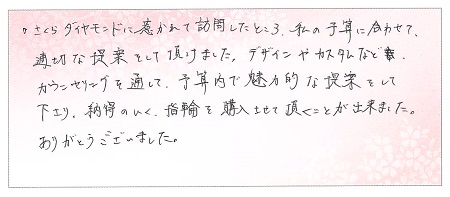 ・さくらダイヤモンドに惹かれて訪問したところ、私の予算に合わせて、
適切な提案をして頂けました。デザインやカスタムなど
カウンセリングを通して、予算内で魅力的な提案をして
下さり、納得のいく、指輪を購入させて頂くことが出来ました。
ありがとうございました。